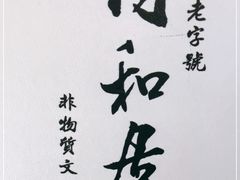 老字號
同和居
非物質文